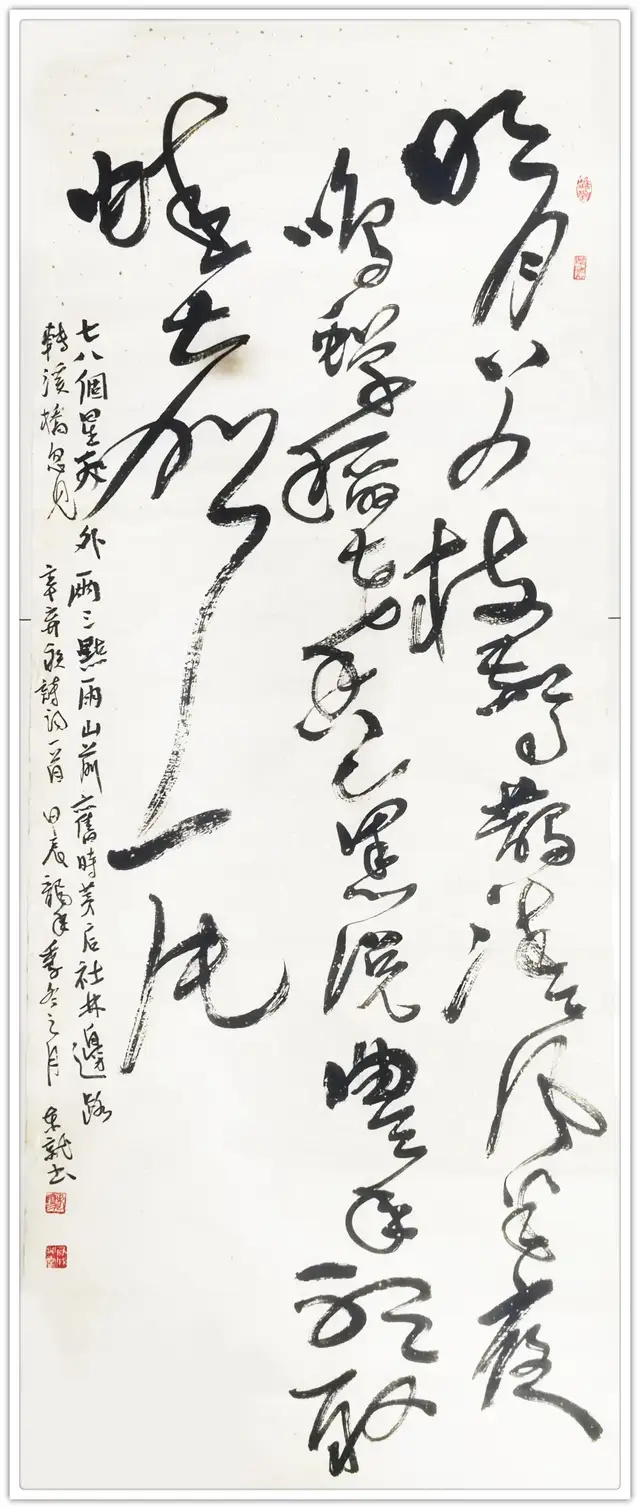 明月别枝驚鵲清風半夜
鳴蟬稻花香裏説豐年聽取
蛙聲一片
七八個星天外兩三點雨山前舊時茅店社林邊路
轉溪橋忽見 辛弃疾詩詞一首 甲辰龍年季冬之月 书